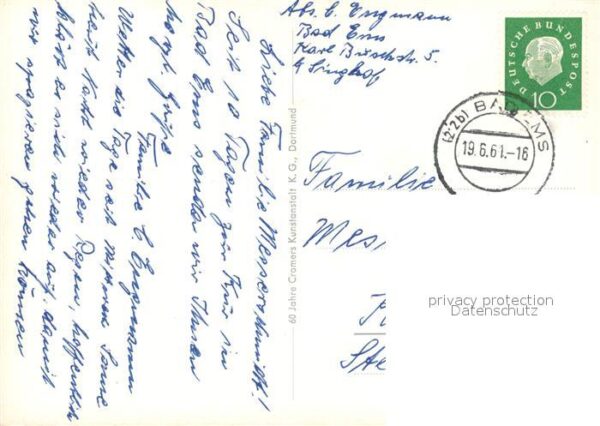 Abs. C. Engmann
Bad Ems
Karl Buschstr. 5.
Liebe Familie Messerschmidt!
Seit 10 Tagen zur Kur in
Bad Ems senden wir Ihnen
herzl. Grüße
Familie C. Engmann
Wetter die Tage seit mittags Sonne
heut Nacht wieder Regen, hoffentlich
klärt es sich wieder auf, damit
wir spazieren gehen können
60 Jahre Cramers Kunstanstalt K.G., Dortmund
DEUTSCHE BUNDESPOST
10
(22b) BAD EMS
19.6.61.-16
Familie
Mes
privacy protection
Datenschutz